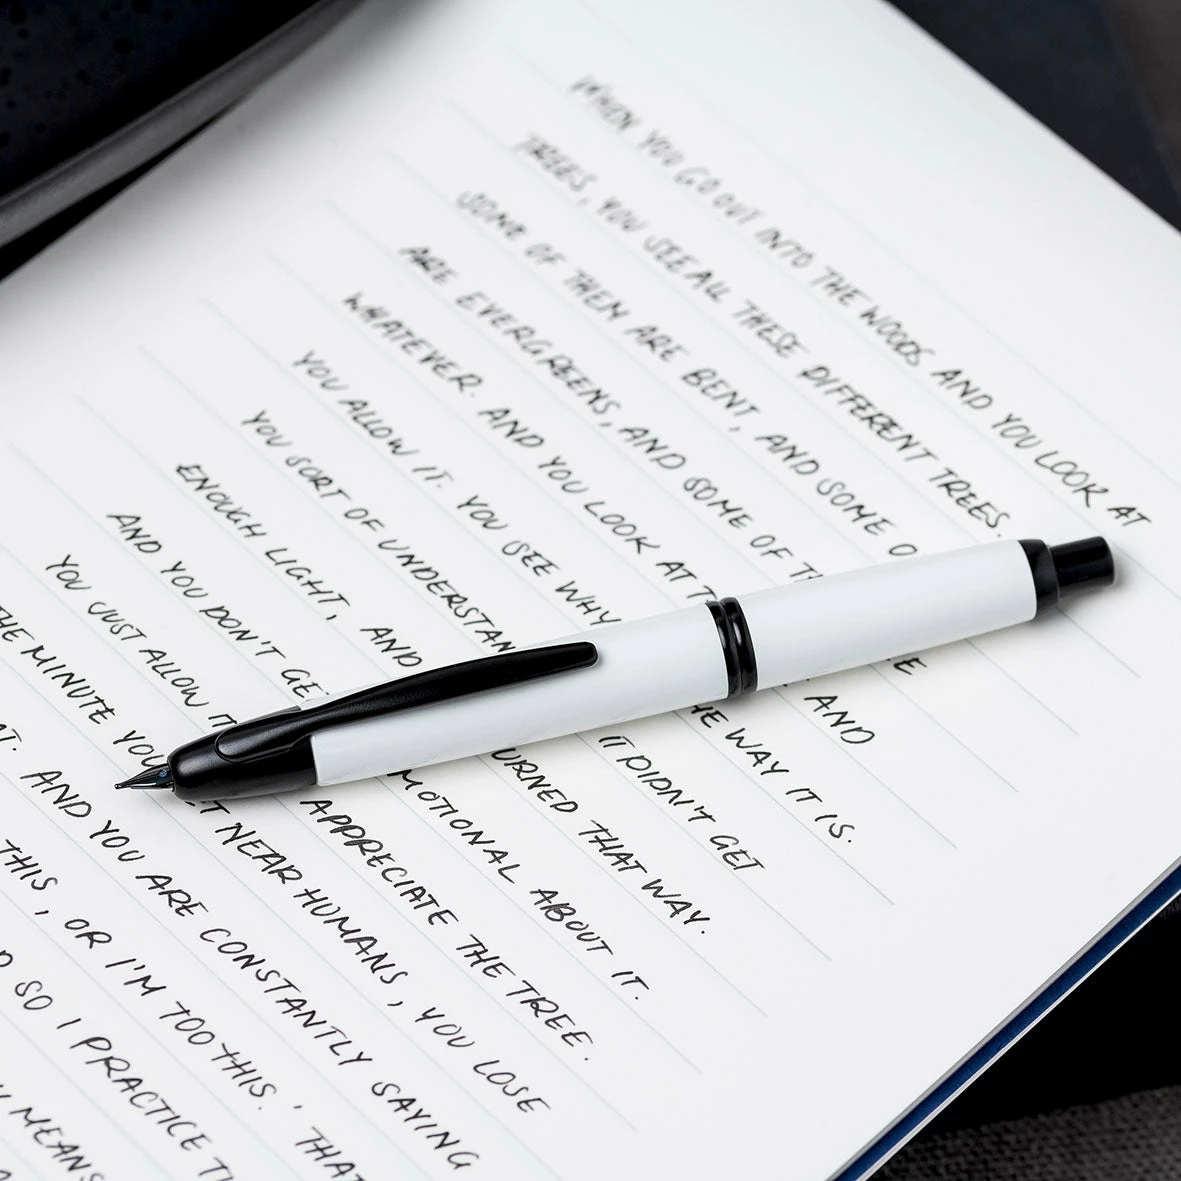 WHEN YOU GO OUT INTO THE WOODS AND YOU LOOK AT
TREES, YOU SEE ALL THESE DIFFERENT TREES.
SOME OF THEM ARE BENT, AND SOME O
ARE EVERGREENS, AND SOME OF TH E
WHATEVER. AND YOU LOOK AT T AND
YOU ALLOW IT. YOU SEE WHY HE WAY IT IS.
YOU SORT OF UNDERSTAN IT DIDN'T GET
ENOUGH LIGHT, AND URNED THAT WAY.
AND YOU DON'T GET MOTIONAL ABOUT IT.
YOU JUST ALLOW IT APPRECIATE THE TREE.
THE MINUTE YOU T NEAR HUMANS, YOU LOSE
AT. AND YOU ARE CONSTANTLY SAYING
THIS, OR I'M TOO THIS.' THAT
D SO I PRACTICE T
MEANS